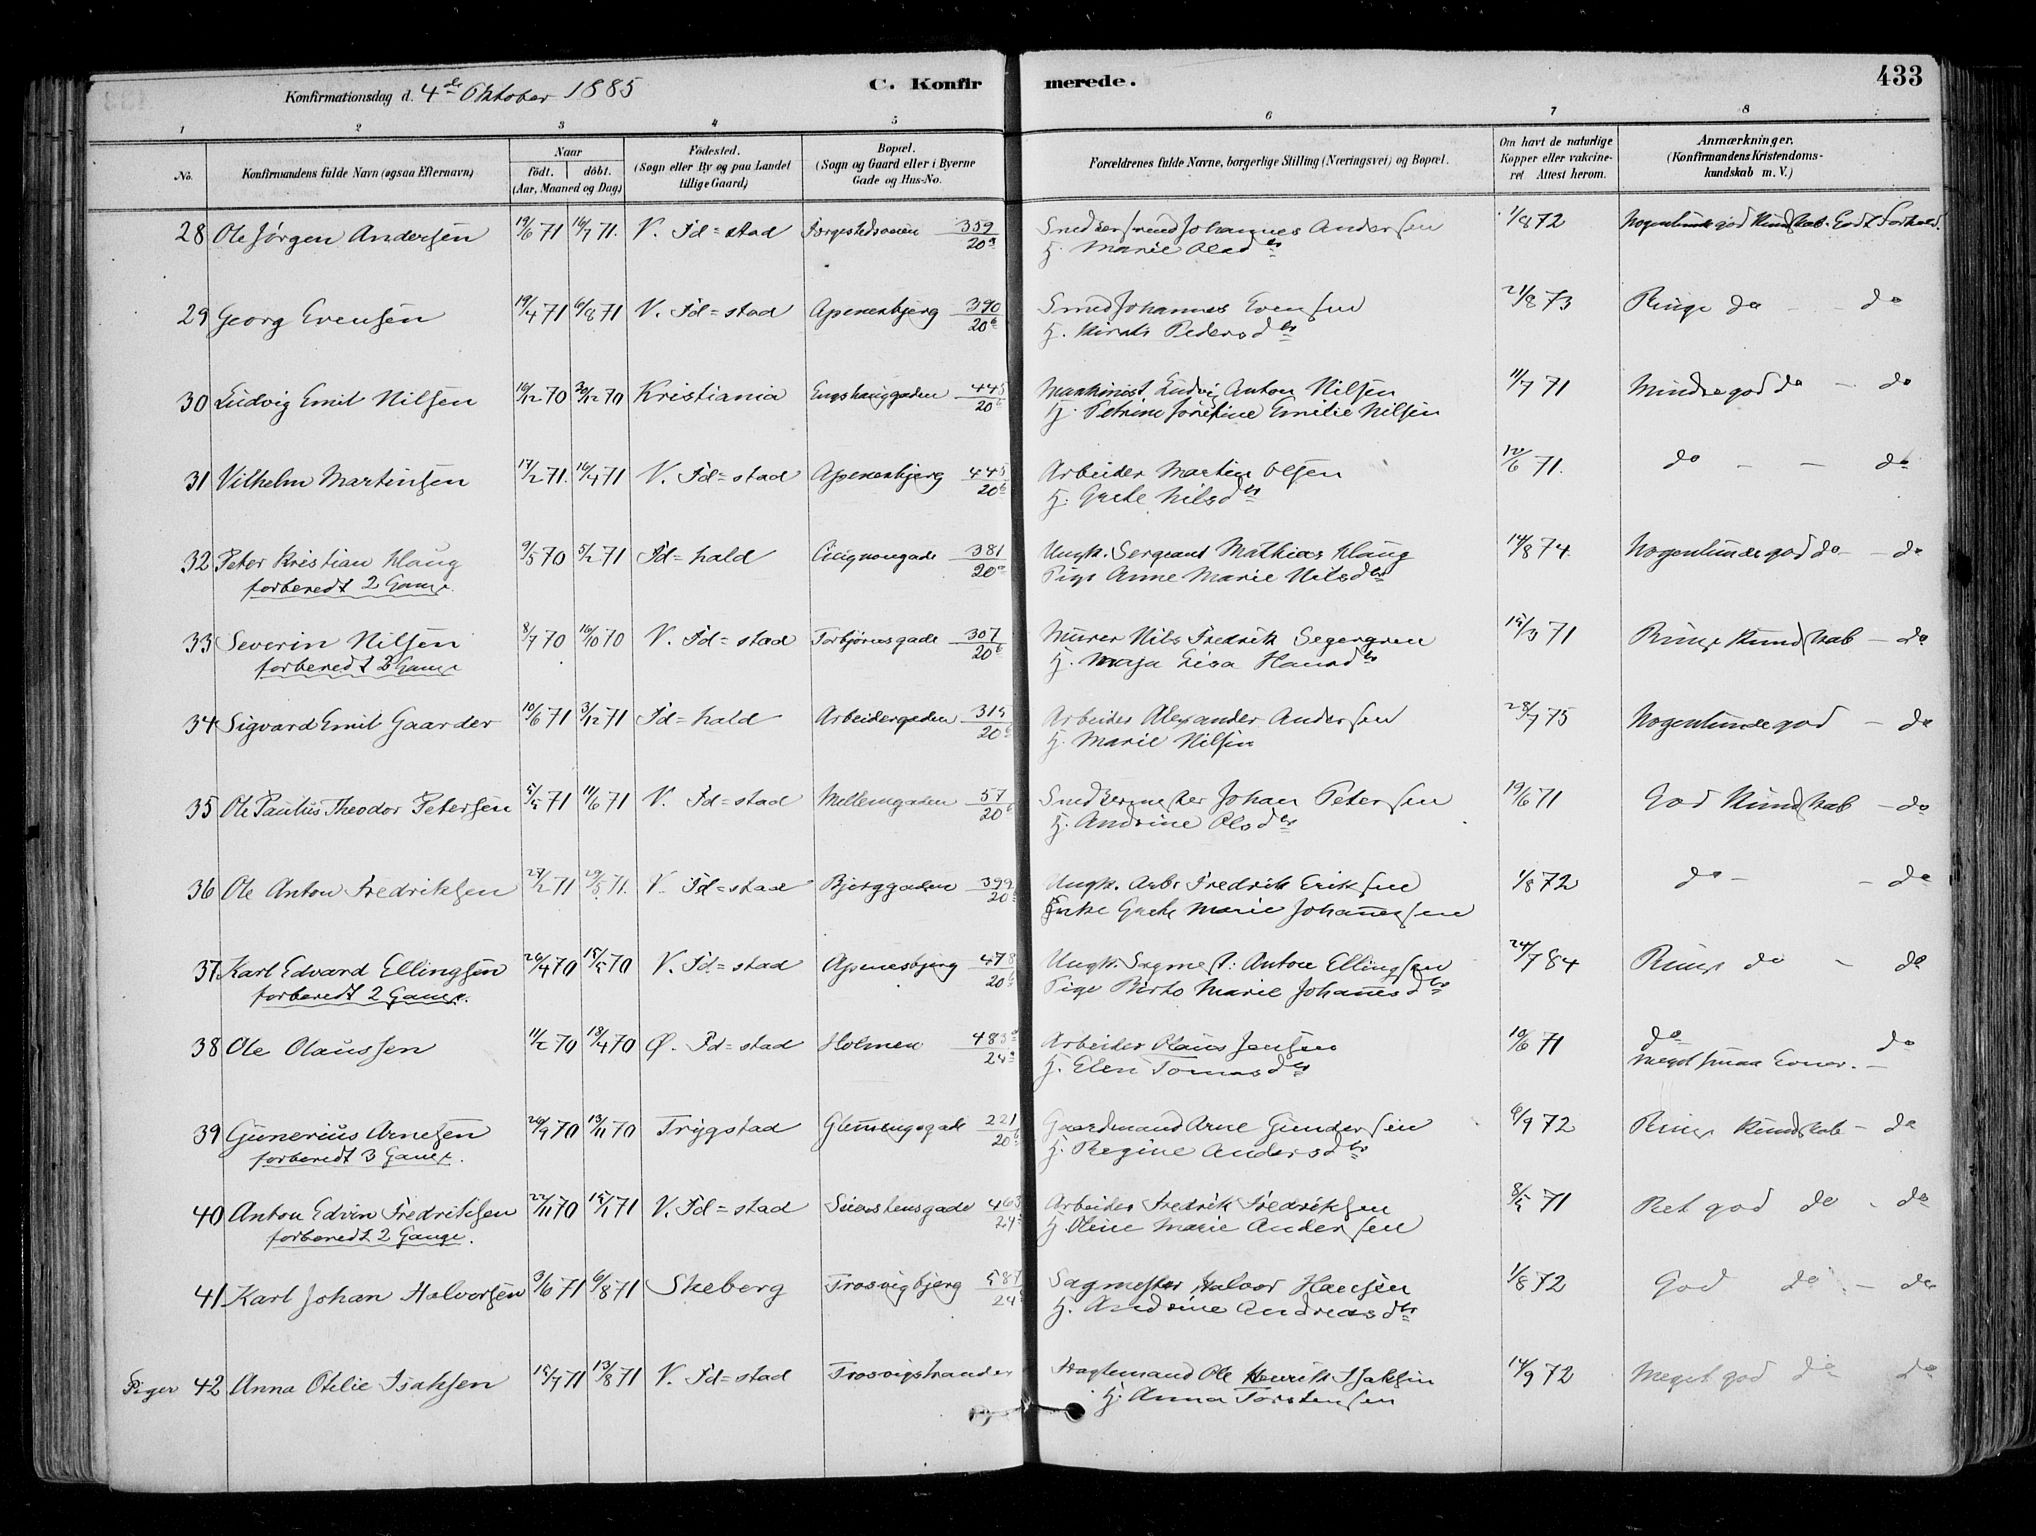 433
Konfirmationsdag d. 4de Oktober 1885 C. Konfirmerede.
1 2 3 4 5 6 7 8
No. Konfirmandens fulde Navn (ogsaa Efternavn) Naar født. døbt. (Aar, Maaned og Dag) Fødested. (Sogn eller By og paa Landet tillige Gaard) Bopæl. (Sogn og Gaard eller i Byerne Gade og Hus-No. Forældrenes fulde Navne, borgerlige Stilling (Næringsvei) og Bopæl. Om havt de naturlige Kopper eller vakcineret Attest herom. Anmærkninger. (Konfirmandens Kristendomskundskab m. V.)
28 Ole Jørgen Andersen 19/6 71 16/7 71. V. Fd=stad 359/20a Snedkersvend Johannes Andersen 1/8 72 Nogenlunde god Kundskab. Godt Forhold.
H. Marie Olsdtr
29 Georg Evensen 19/4 71 6/8 71 V. Fd=stad Apenesbjerg 390/20b Smed Johannes Evensen 21/8 73 Ringe do - - do
H. Pedersdtr
30 Ludvig Emil Nilsen 16/12 70 30/12 70 Kristiania Enghauggaden 445/20b Maskinist Ludvig Anton Nilsen 11/7 71 Mindre god do - do
H. Petrine Josefine Emilie Nilsen
31 Vilhelm Martinsen 17/2 71. 16/4 71 V. Fd=stad Apenesbjerg 445/20b Arbeider Martin Olsen 12/6 71. do - - do
H. Grete Nilsdtr
32 Peter Kristian Haug 9/5 70 5/2 71 Fd=hald Cicignongade 381/20a Ungk. Sergeant Mathias Haug 14/8 74. Nogenlunde god do - - do
forberedt 2 Gange. Pige Anne Marie Nilsdtr
33 Severin Nilsen 8/7 70 16/10 70 V. Fd=stad Torbjørnsgade 307/20b Murer Nils Fredrik Segergren 15/3 71 Ringe Kundskab - do
forberedt 3 Gange H. Maja Lisa Hansdtr
34 Sigvard Emil Gaarder 10/6 71 3/12 71 Fd=hald Arbeidergaden 315/20b Arbeider Alexander Andersen 28/7 75 Nogenlunde god - do
H. Marie Nilsen
35 Ole Paulus Theodor Petersen 5/5 71 11/6 71 V. Fd=stad Mellemgaden 57/20b Snedkermester Johan Petersen 19/6 71 God Kundskab - do
H. Andrine Olsdtr
36 Ole Anton Fredriksen 27/2 71 29/5 71. V. Fd=stad Bjerggaden 399/20b Ungk. Arb. Fredrik Eriksen 1/8 72 do - - do
Enke Grete Marie Johannesen
37 Karl Edvard Ellingsen 26/4 70 15/5 70 V. Fd=stad Apenesbjerg 478/20b Ungk. Sagmest: Anton Ellingsen 24/7 84 Ringe do - - do
forberedt 2 Gange. Pige Marie Johannesdtr
38 Ole Olaussen 11/2 70 18/4 70 Ø. Fd=stad Holmen 483a/24a Arbeider Olaus Jensen 10/6 71 do do
H. Elen Tomasdtr meget smaa Evner. -
39 Gunerius Arnesen 26/9 70 13/11 70 Trygstad Glemmengade 221/20b Gaardmand Arne Gundersen 6/9 72 Ringe Kundskab - do
forberedt 3 Gange. H. Regine Andersdtr
40 Anton Edvin Fredriksen 22/11 70 15/1 71 V. Fd=stad 463/24a Arbeider Fredrik Fredriksen 8/5 71 Ret god do - do
forberedt 2 Gange. H. Oline Marie Andersen
41 Karl Johan Halvorsen 3/6 71 6/8 71 Skeberg Trosvigbjerg 587/24a Sagmester Halvor Hansen 1/8 72 God do - do
H. Andrine Andreasdtr
Piger 42 Anna Otilie Isaksen 15/7 71 13/8 71 V. Fd=stad Trosvigstranden Ole Henrik Isaksen 14/9 72 Meget god do do
H. Anna Torstensen